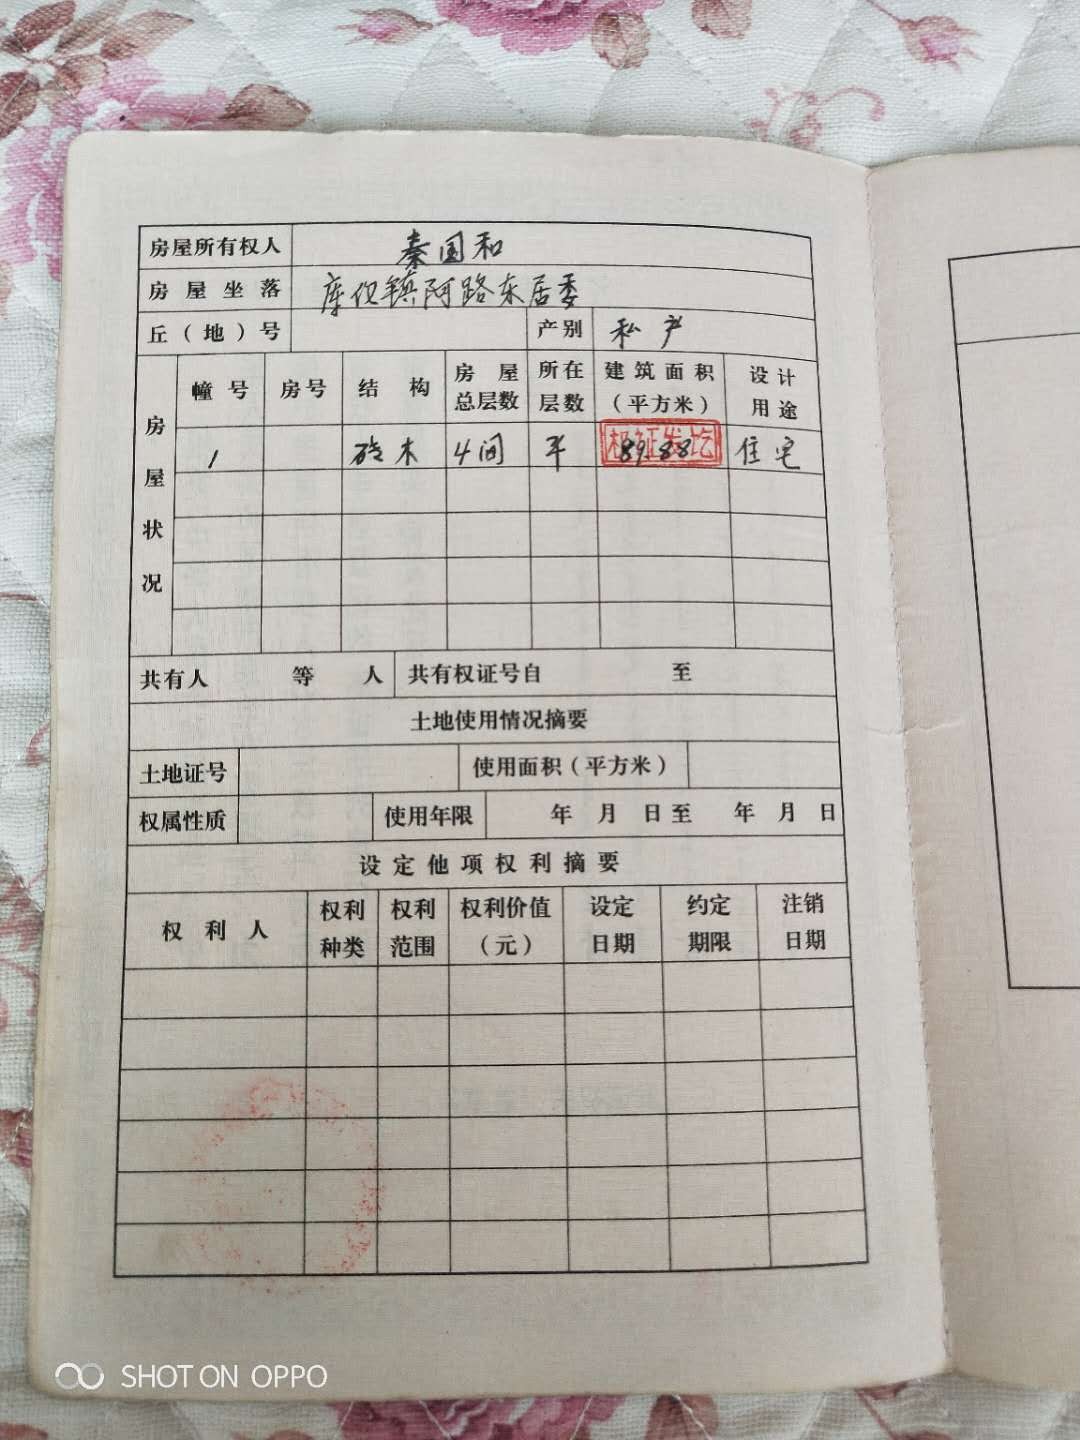 房屋所有权人 秦国和
房屋坐落 库仪镇阿路东居委
丘（地）号 产别 私产
房屋状况 幢号 房号 结构 房屋总层数 所在层数 建筑面积（平方米） 设计用途
1 砖木 4间 平 89.88 住宅
共有人 等 人 共有权证号自 至
土地使用情况摘要
土地证号 使用面积（平方米）
权属性质 使用年限 年 月 日至 年 月 日
设定他项权利摘要
权利人 权利种类 权利范围 权利价值（元） 设定日期 约定期限 注销日期
SHOT ON OPPO